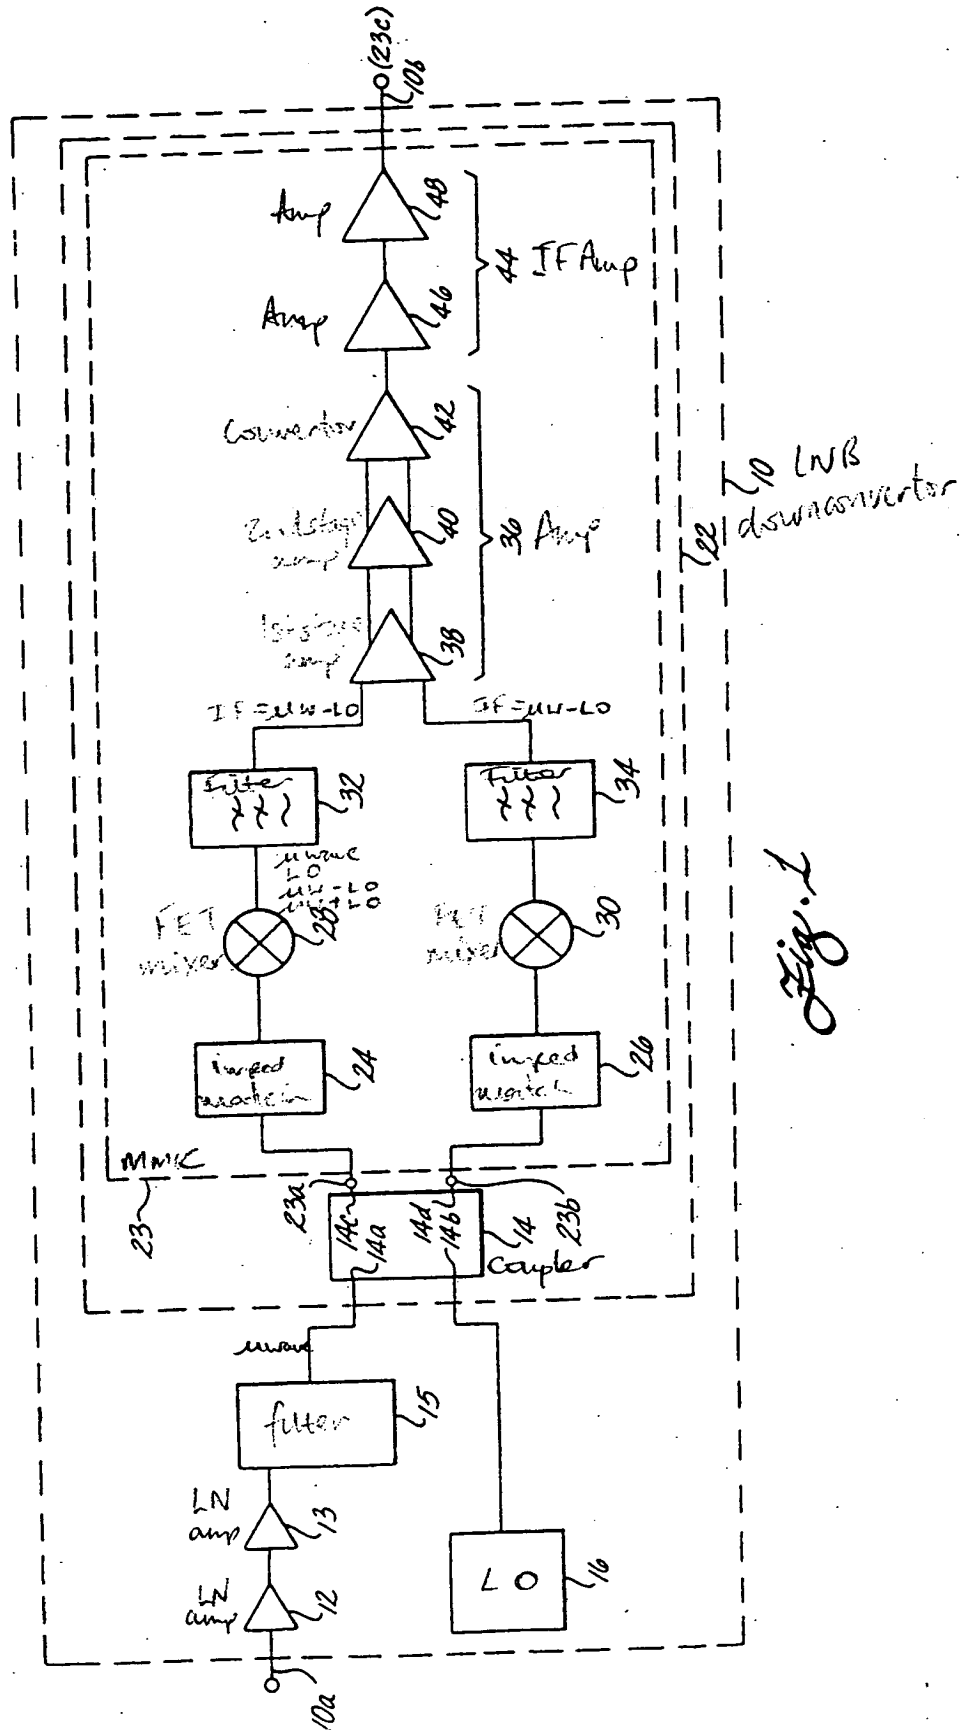 (23c)
10b
Amp
48
Amp
46
44 IF Amp
Convertor
42
2nd stage
amp
40
36 Amp
1st stage
amp
38
10 LNB
downconvertor
22
IF=μW-LO
IF=μW-LO
Filter
32
Filter
34
μwave
LO
μW-LO
μW+LO
FET
mixer
28
FET
mixer
30
imped
match
24
imped
match
26
MMIC
23
23a
23b
14c
14a
14d
14b
14
Coupler
μwave
filter
15
LN
amp
13
LN
amp
12
LO
16
10a
Fig. 1